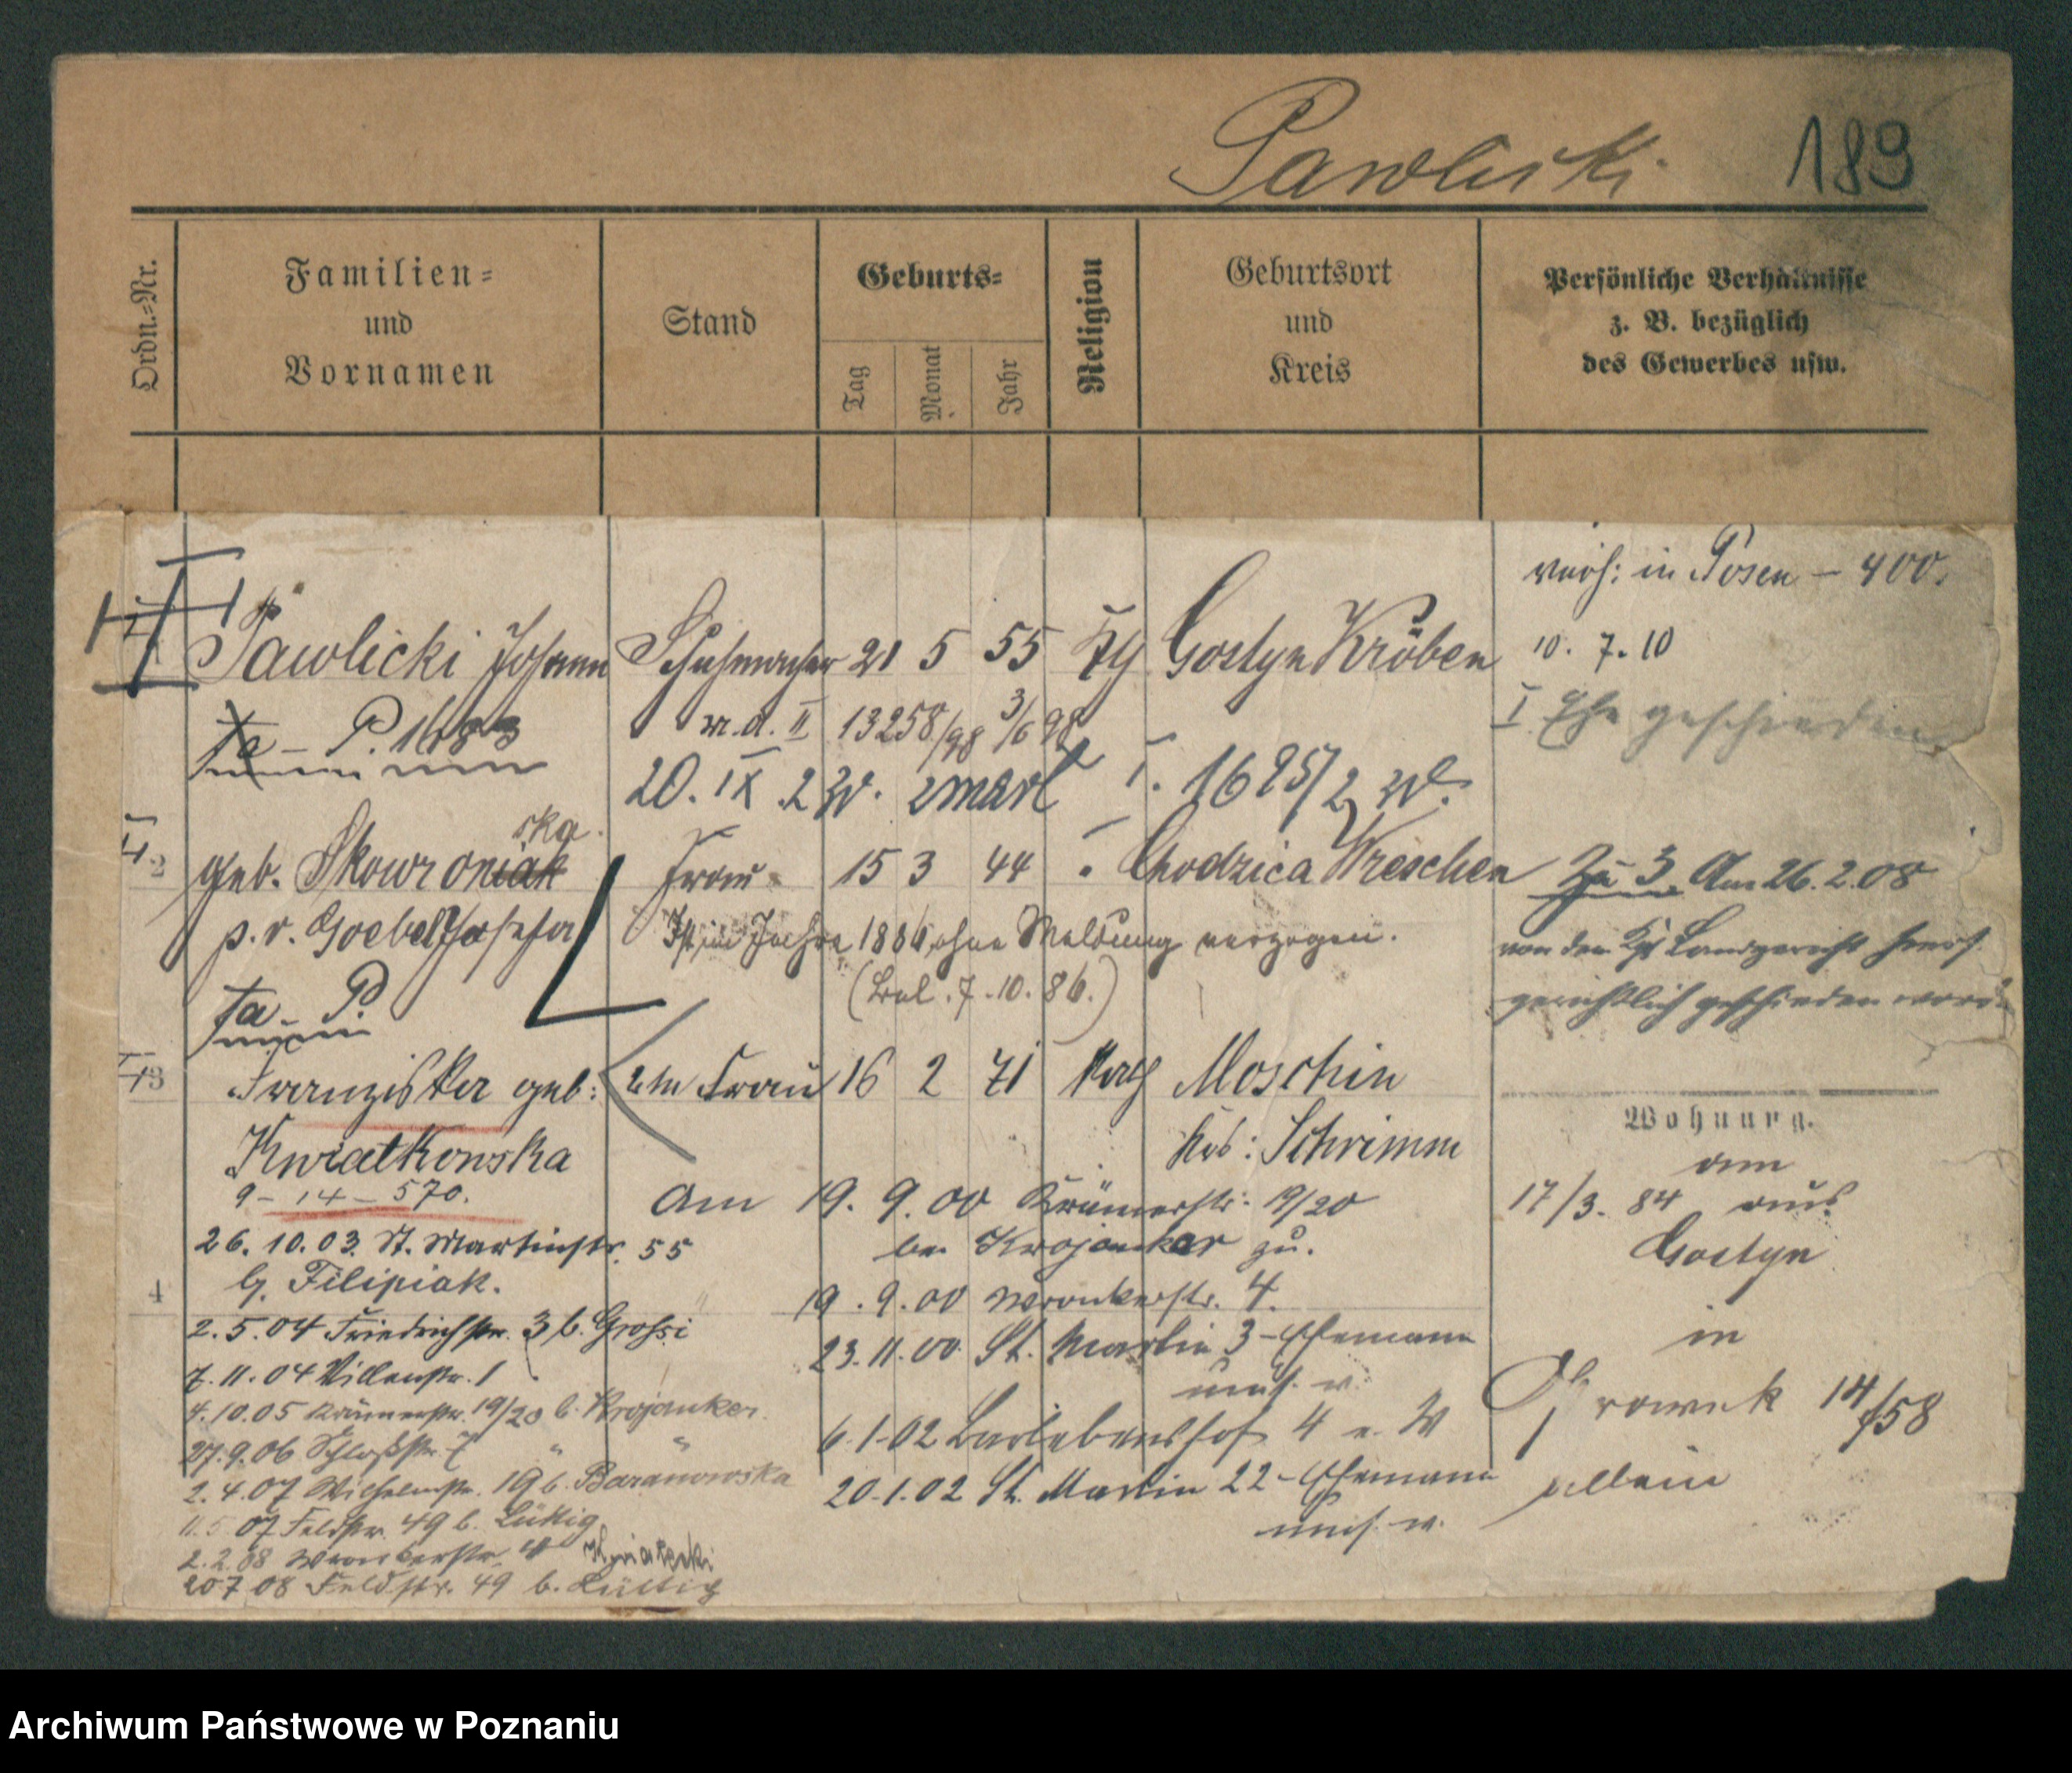 Pawlicki 189
Ordn.=Nr.
Familien=
und
Vornamen
Stand
Geburts=
Tag
Monat
Jahr
Religion
Geburtsort
und
Kreis
Persönliche Verhältnisse
z. B. bezüglich
des Gewerbes usw.
verh: in Posen – 400.
1 Pawlicki Johann Schuhmacher 21 5 55 Gostyn Kröben 10. 7. 10
I Ehe geschieden
II 13258/98 3/6 98
20. IX. 2 zmarł 1625/2
ska
2 geb. Skowroniak Frau 15 3 44 Chodzica Wreschen
p. v. Goebel Josefa
Ist im Jahre 1886 ohne Meldung verzogen.
(Bel. 7. 10. 86.)
Zu 3. Am 26. 2. 08
von dem Kgl Landgericht
gerichtlich geschieden
3 Franziska geb: 2te Frau 16 2 71 Kath Moschin
Kwiatkowska Krs: Schrimm
9 – 14 – 570.
Wohnung.
am
17/3. 84 aus
Gostyn
in
14/58
allein
Am 19. 9. 00 Krämerstr. 19/20
bei Krojanker zu.
19. 9. 00 Wronkerstr. 4.
23. 11. 00 St. Martin 3 – Ehemann
6. 1. 02 Barlebenshof 4
20. 1. 02 St. Martin 22 – Ehemann
26. 10. 03. St. Martinstr. 55
b. Filipiak.
4
2. 5. 04 Friedrichstr. 3 b.
7. 11. 04 Villenstr. 1
4. 10. 05 Krämerstr. 19/20 b. Krojanker.
27. 9. 06 Schloßstr. 7 " "
2. 4. 07 Wilhelmstr. 19 b. Baranowska
11. 5 07 Feldstr. 49 b. Lüttig
2. 2. 08 Wronkerstr. 4
20 7 08 Feldstr. 49 b. Lüttig
Archiwum Państwowe w Poznaniu